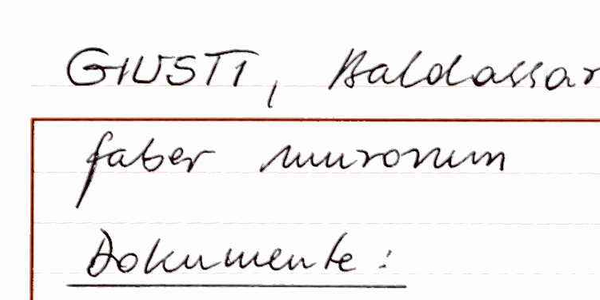 GIUSTI, Baldassar
faber murorum
Dokumente: